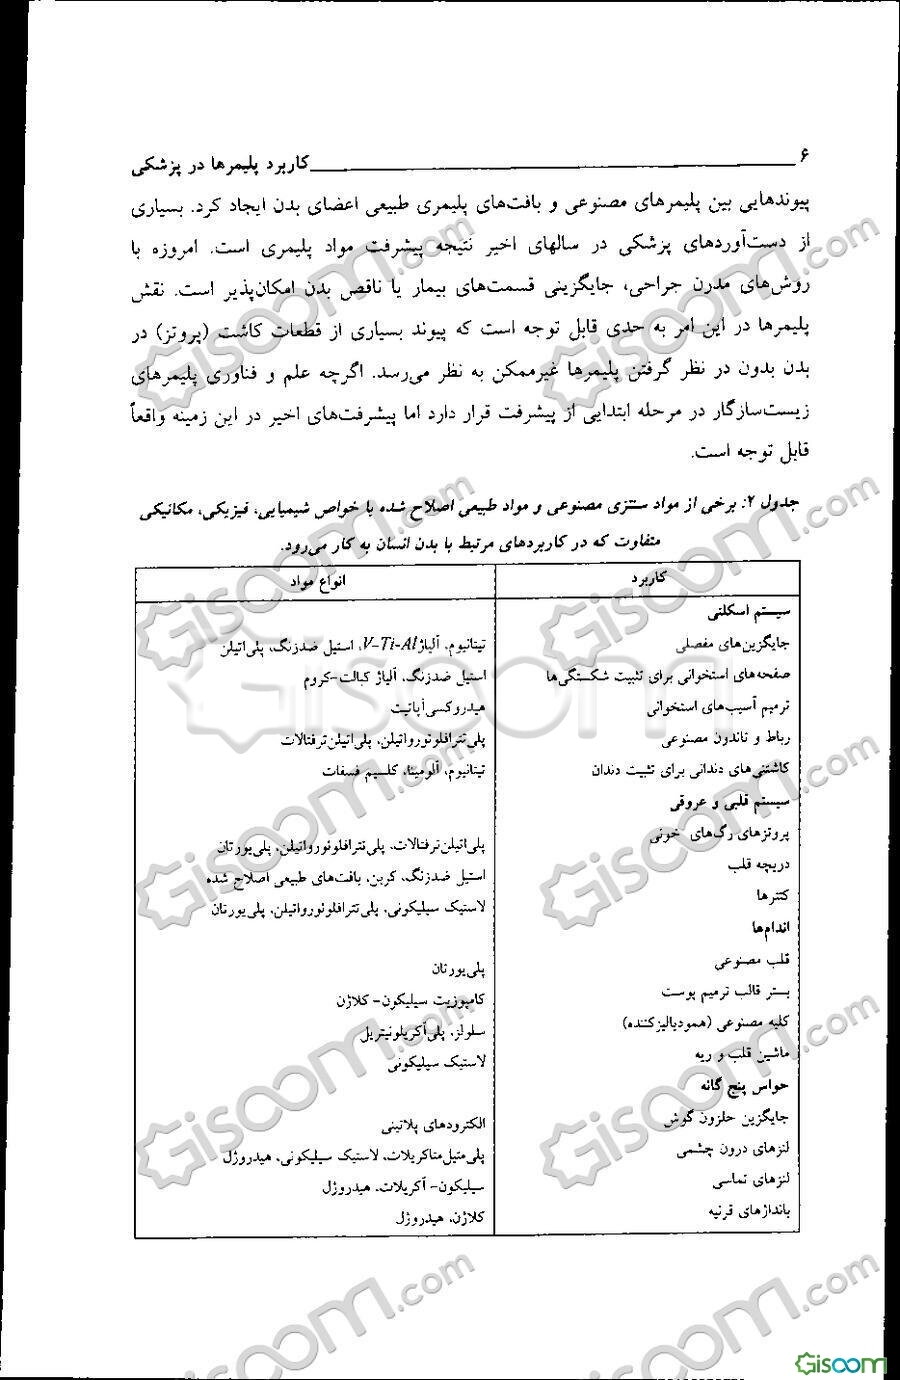 ۶ کاربرد پلیمرها در پزشکی
پیوندهایی بین پلیمرهای مصنوعی و بافت‌های پلیمری طبیعی اعضای بدن ایجاد کرد. بسیاری
از دست‌آوردهای پزشکی در سالهای اخیر نتیجه پیشرفت مواد پلیمری است. امروزه با
روش‌های مدرن جراحی، جایگزینی قسمت‌های بیمار یا ناقص بدن امکان‌پذیر است. نقش
پلیمرها در این امر به حدی قابل توجه است که پیوند بسیاری از قطعات کاشت (پروتز) در
بدن بدون در نظر گرفتن پلیمرها غیرممکن به نظر می‌رسد. اگرچه علم و فناوری پلیمرهای
زیست‌سازگار در مرحله ابتدایی از پیشرفت قرار دارد اما پیشرفت‌های اخیر در این زمینه واقعاً
قابل توجه است.
جدول ۲: برخی از مواد سنتزی مصنوعی و مواد طبیعی اصلاح شده با خواص شیمیایی، فیزیکی، مکانیکی
متفاوت که در کاربردهای مرتبط با بدن انسان به کار می‌رود.
کاربرد انواع مواد
سیستم اسکلتی
جایگزین‌های مفصلی تیتانیوم، آلیاژ V-Ti-Al، استیل ضدزنگ، پلی‌اتیلن
صفحه‌های استخوانی برای تثبیت شکستگی‌ها استیل ضدزنگ، آلیاژ کبالت-کروم
ترمیم آسیب‌های استخوانی هیدروکسی‌آپاتیت
رباط و تاندون مصنوعی پلی‌تترافلوئورواتیلن، پلی‌اتیلن‌ترفتالات
کاشتنی‌های دندانی برای تثبیت دندان تیتانیوم، آلومینا، کلسیم فسفات
سیستم قلبی و عروقی
پروتزهای رگ‌های خونی پلی‌اتیلن‌ترفتالات، پلی‌تترافلوئورواتیلن، پلی‌یورتان
دریچه قلب استیل ضدزنگ، کربن، بافت‌های طبیعی اصلاح شده
کتترها لاستیک سیلیکونی، پلی‌تترافلوئورواتیلن، پلی‌یورتان
اندام‌ها
قلب مصنوعی پلی‌یورتان
بستر قالب ترمیم پوست کامپوزیت سیلیکون- کلاژن
کلیه مصنوعی (همودیالیزکننده) سلولز، پلی‌آکریلونیتریل
ماشین قلب و ریه لاستیک سیلیکونی
حواس پنج گانه
جایگزین حلزون گوش الکترودهای پلاتینی
لنزهای درون چشمی پلی‌متیل‌متاکریلات، لاستیک سیلیکونی، هیدروژل
لنزهای تماسی سیلیکون- آکریلات، هیدروژل
بانداژهای قرنیه کلاژن، هیدروژل
Gisoom